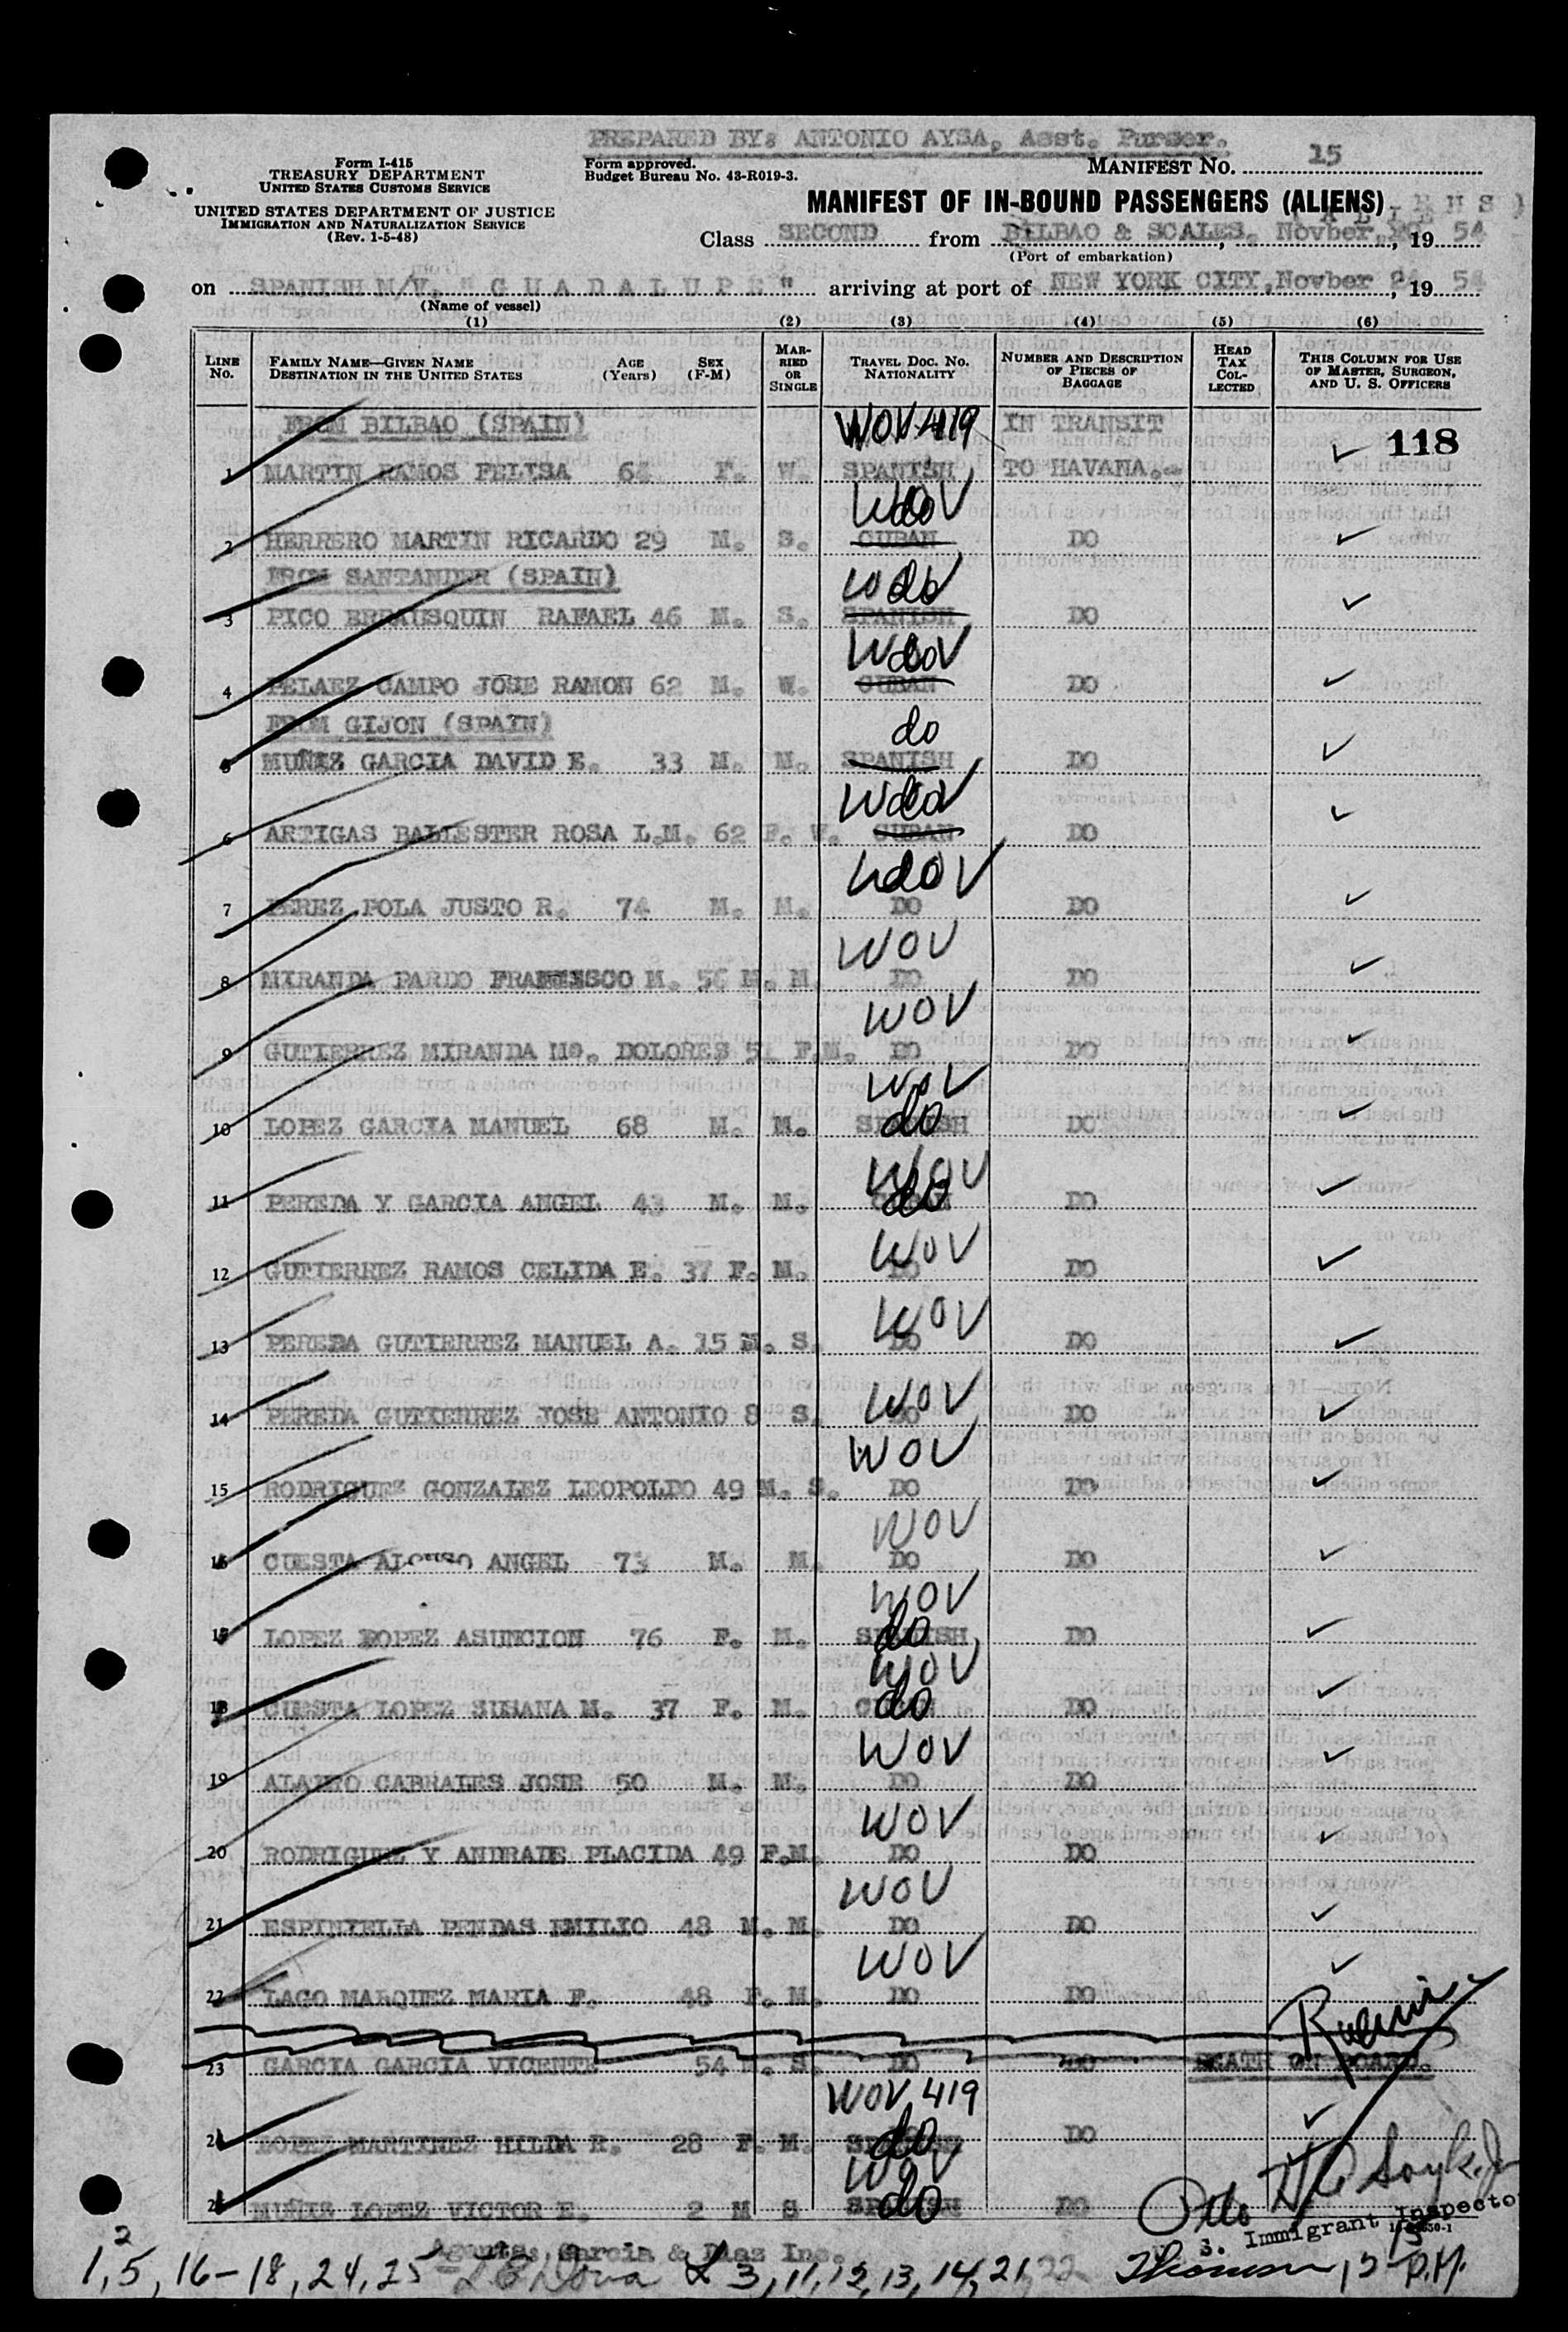 PREPARED BY: ANTONIO AYSA, Asst. Purser.
Form I-415
TREASURY DEPARTMENT
UNITED STATES CUSTOMS SERVICE
UNITED STATES DEPARTMENT OF JUSTICE
IMMIGRATION AND NATURALIZATION SERVICE
(Rev. 1-5-48)
Form approved.
Budget Bureau No. 43-R019-3.
MANIFEST No. 15
MANIFEST OF IN-BOUND PASSENGERS (ALIENS)
Class SECOND from BILBAO & SCALES, Novber, 19 54
(Port of embarkation)
on SPANISH M/V. "GUADALUPE" arriving at port of NEW YORK CITY, Novber 24, 19 54
(Name of vessel)
(1) (2) (3) (4) (5) (6)
LINE No. FAMILY NAME—GIVEN NAME DESTINATION IN THE UNITED STATES AGE (Years) SEX (F-M) MARRIED OR SINGLE TRAVEL DOC. No. NATIONALITY NUMBER AND DESCRIPTION OF PIECES OF BAGGAGE HEAD TAX COLLECTED THIS COLUMN FOR USE OF MASTER, SURGEON, AND U. S. OFFICERS
FROM BILBAO (SPAIN) WOV-419 IN TRANSIT 118
1 MARTIN RAMOS FELISA 64 F. W. SPANISH TO HAVANA.
WOV do
2 HERRERO MARTIN RICARDO 29 M. S. CUBAN DO
FROM SANTANDER (SPAIN) WOV do
3 PICO RAFAEL 46 M. S. SPANISH DO
WOV do
4 PELAEZ CAMPO JOSE RAMON 62 M. W. CUBAN DO
FROM GIJON (SPAIN) do
5 MUÑIZ GARCIA DAVID E. 33 M. M. SPANISH DO
WOV do
6 ARTIGAS BALLESTER ROSA L.M. 62 F. W. CUBAN DO
WOV do
7 PEREZ POLA JUSTO R. 74 M. M. DO DO
WOV
8 MIRANDA PARDO FRANCISCO M. M. M. DO DO
WOV
9 GUTIERREZ MIRANDA Mª. DOLORES F.M. DO DO
WOV do
10 LOPEZ GARCIA MANUEL 68 M. M. SPANISH DO
WOV do
11 PEREDA Y GARCIA ANGEL 43 M. M. CUBAN DO
WOV
12 GUTIERREZ RAMOS CELIDA E. 37 F. M. DO DO
WOV
13 PEREDA GUTIERREZ MANUEL A. 15 M. S. DO DO
WOV
14 PEREDA GUTIERREZ JOSE ANTONIO 8 S. DO DO
WOV
15 RODRIGUEZ GONZALEZ LEOPOLDO 49 M. S. DO DO
WOV
16 CUESTA ALONSO ANGEL 73 M. M. DO DO
WOV do
17 LOPEZ LOPEZ ASUNCION 76 F. M. SPANISH DO
WOV do
18 CUESTA LOPEZ SUSANA M. 37 F. M. CUBAN DO
WOV
19 CABRALES JOSE 50 M. M. DO DO
WOV
20 RODRIGUEZ Y ANDRADE PLACIDA 49 F.M. DO DO
WOV
21 ESPINIELLA PENDAS EMILIO 48 M. M. DO DO
WOV
22 LAGO MARQUEZ MARIA F. 48 F. M. DO DO
23 GARCIA GARCIA VICENTE 54 M. S. DO DO DEATH ON BOARD.
WOV 419 do
24 LOPEZ MARTINEZ HILDA R. 28 F. M. SPANISH DO
WOV do
25 MUÑIZ LOPEZ VICTOR E. 2 M S SPANISH DO
U. S. Immigrant Inspector
Agents: Garcia & Diaz Inc.
1, 2, 5, 16-18, 24, 25 3, 11, 12, 13, 14, 21, 22